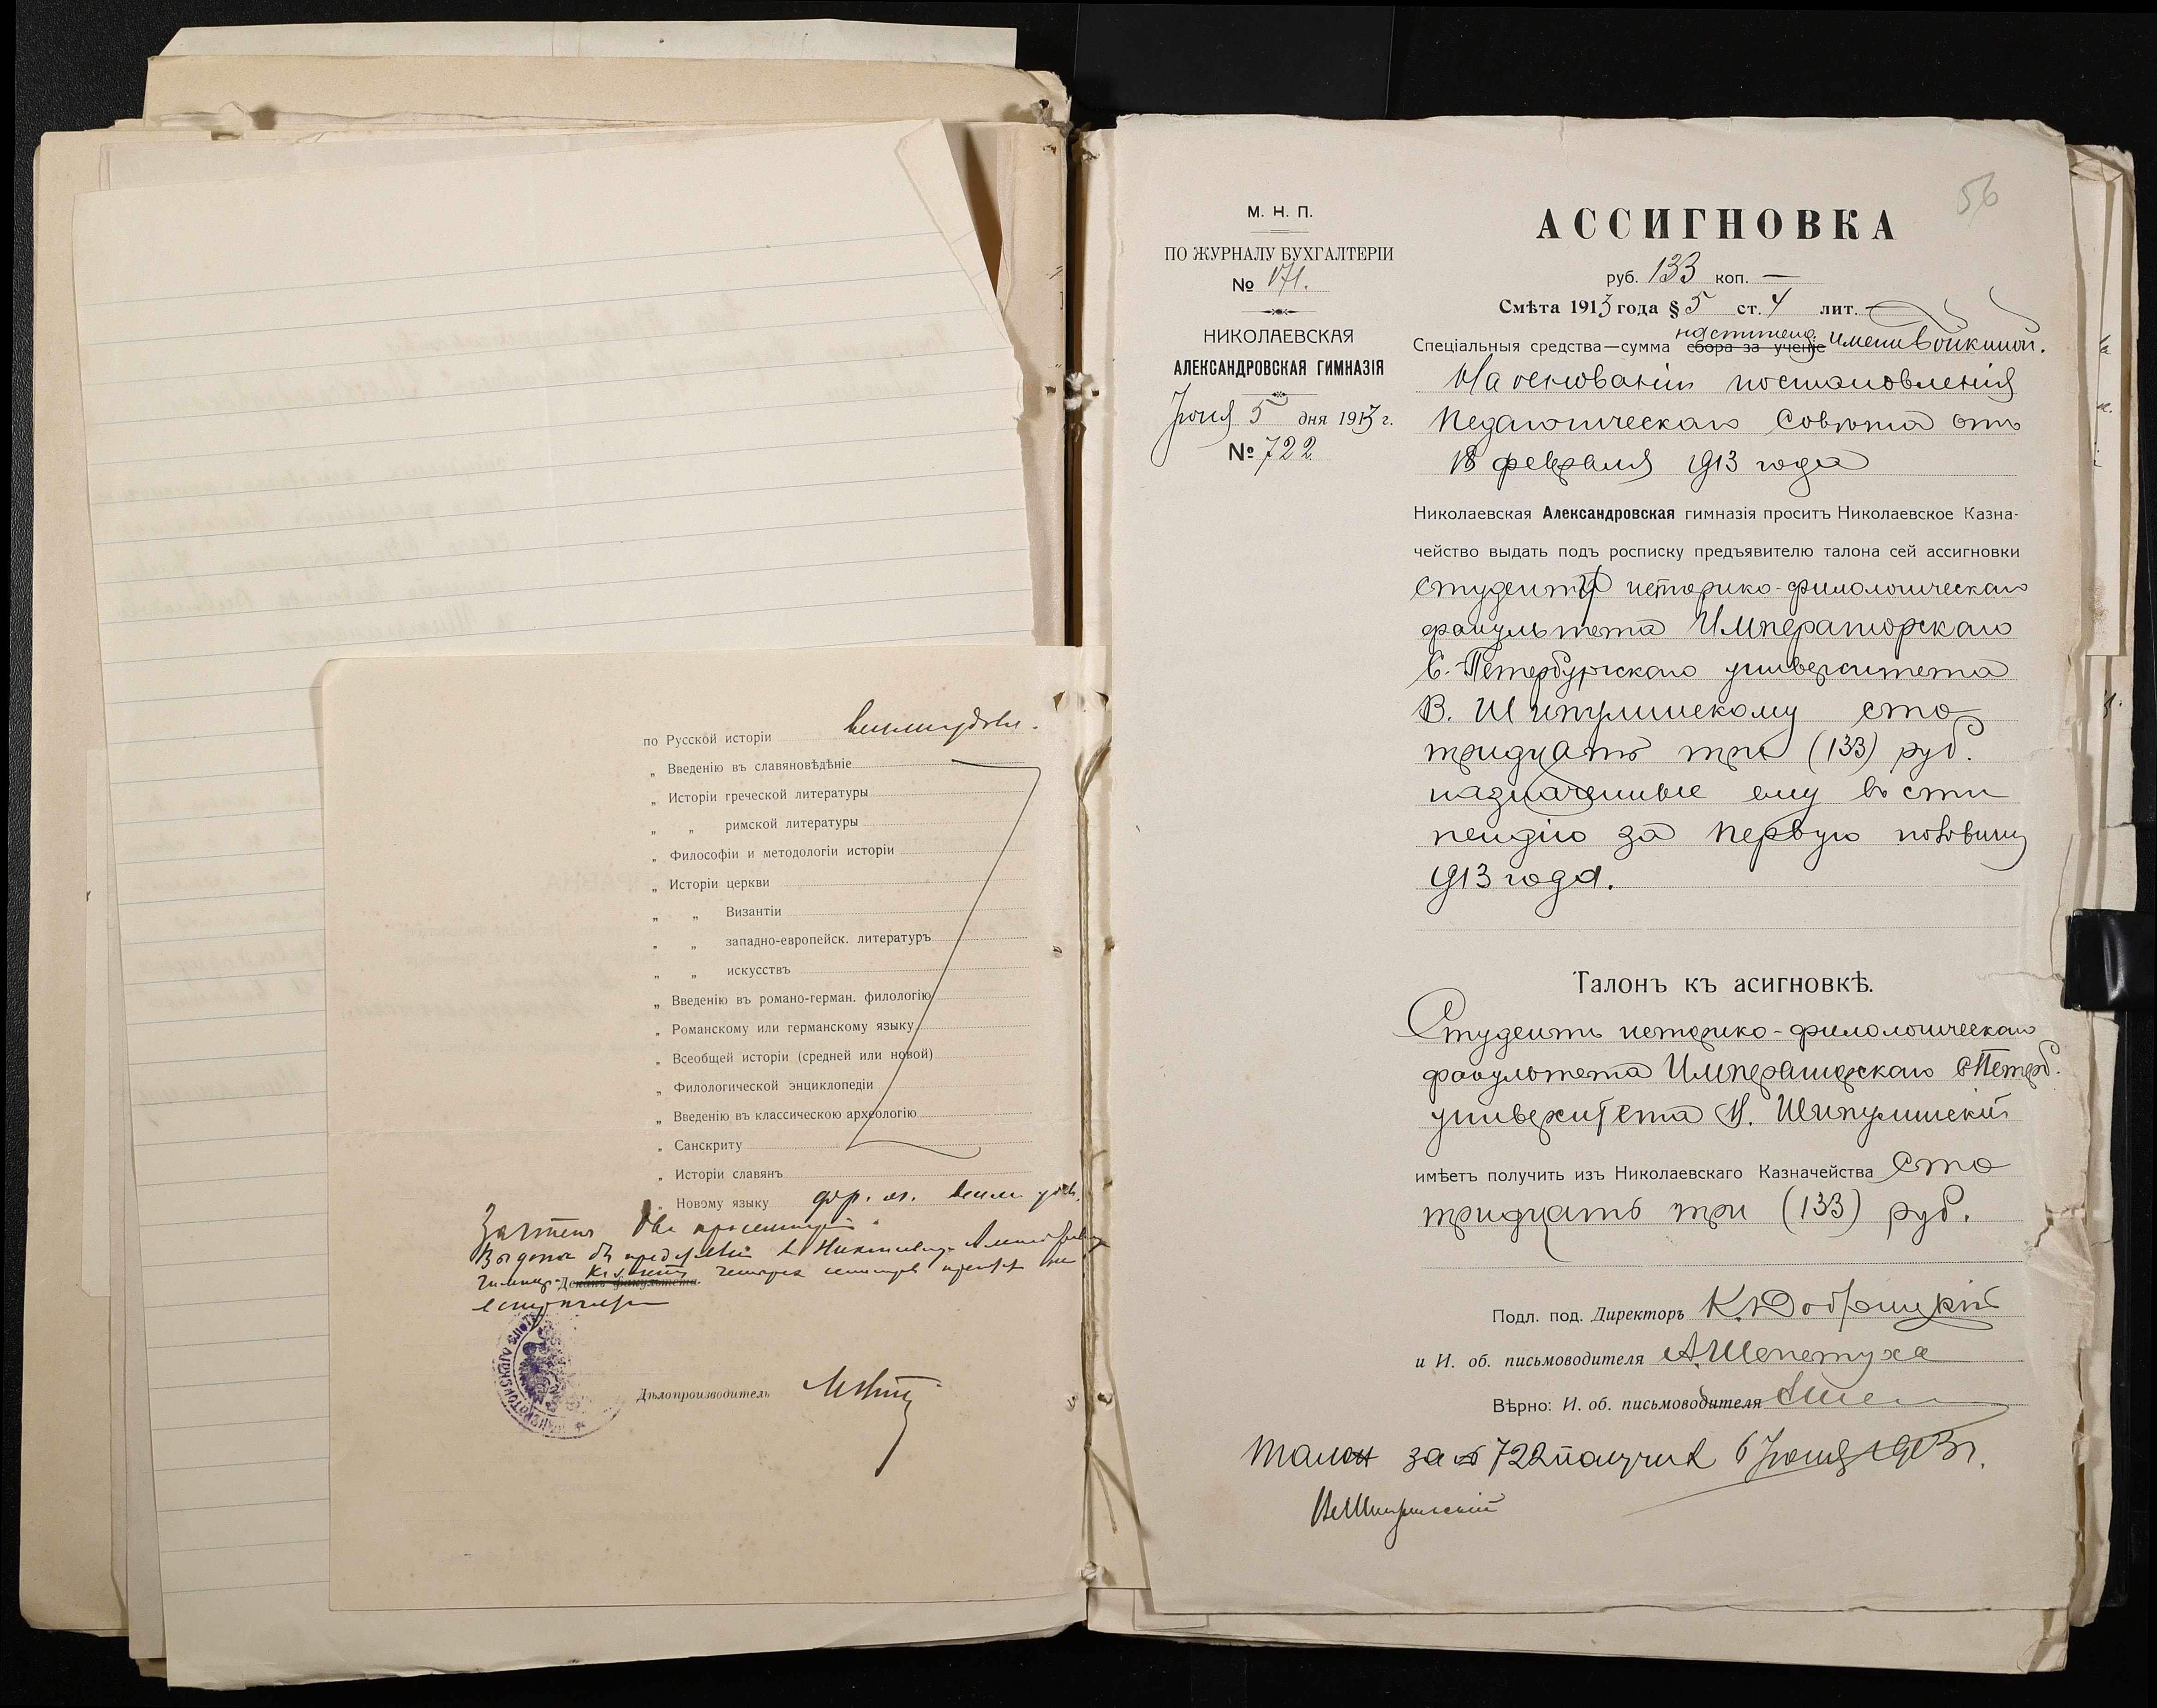 по Русской исторіи весьма удовл.
„ Введенію въ славяновѣдѣніе
„ Исторіи греческой литературы
„ „ римской литературы
„ Философіи и методологіи исторіи
„ Исторіи церкви
„ „ Византіи
„ „ западно-европейск. литературъ
„ „ искусствъ
„ Введенію въ романо-герман. филологію
„ Романскому или германскому языку
„ Всеобщей исторіи (средней или новой)
„ Филологической энциклопедіи
„ Введенію въ классическою археологію
„ Санскриту
„ Исторіи славянъ
„ Новому языку фр. яз. весьма удовл.
Зачтено два
Выдана въ
Деканъ факультета
Дѣлопроизводитель
56
М. Н. П.
ПО ЖУРНАЛУ БУХГАЛТЕРІИ
№ 171.
НИКОЛАЕВСКАЯ
АЛЕКСАНДРОВСКАЯ ГИМНАЗІЯ
Іюня 5 дня 1913 г.
№ 722
АССИГНОВКА
руб. 133 коп. —
Смѣта 1913 года § 5 ст. 4 лит. —
Спеціальныя средства—сумма сбора за ученіе имени Войкиной.
На основаніи постановленія
Педагогическаго Совѣта отъ
18 февраля 1913 года
Николаевская Александровская гимназія проситъ Николаевское Казна-
чейство выдать подъ росписку предъявителю талона сей ассигновки
студенту историко-филологическаго
факультета Императорскаго
С.-Петербургскаго университета
В. Шипулинскому сто
тридцать три (133) руб.
назначенные ему въ сти
пендію за первую половину
1913 года.
Талонъ къ асигновкѣ.
Студентъ историко-филологическаго
факультета Императорскаго СПетерб.
университета В. Шипулинскій
имѣетъ получить изъ Николаевскаго Казначейства сто
тридцать три (133) руб.
Подл. под. Директоръ К. Добрницкій
и И. об. письмоводителя А. Шепетуха
Вѣрно: И. об. письмоводителя
Талон за № 722 получил 6 Іюня 1913 г.
В. Шипулинскій